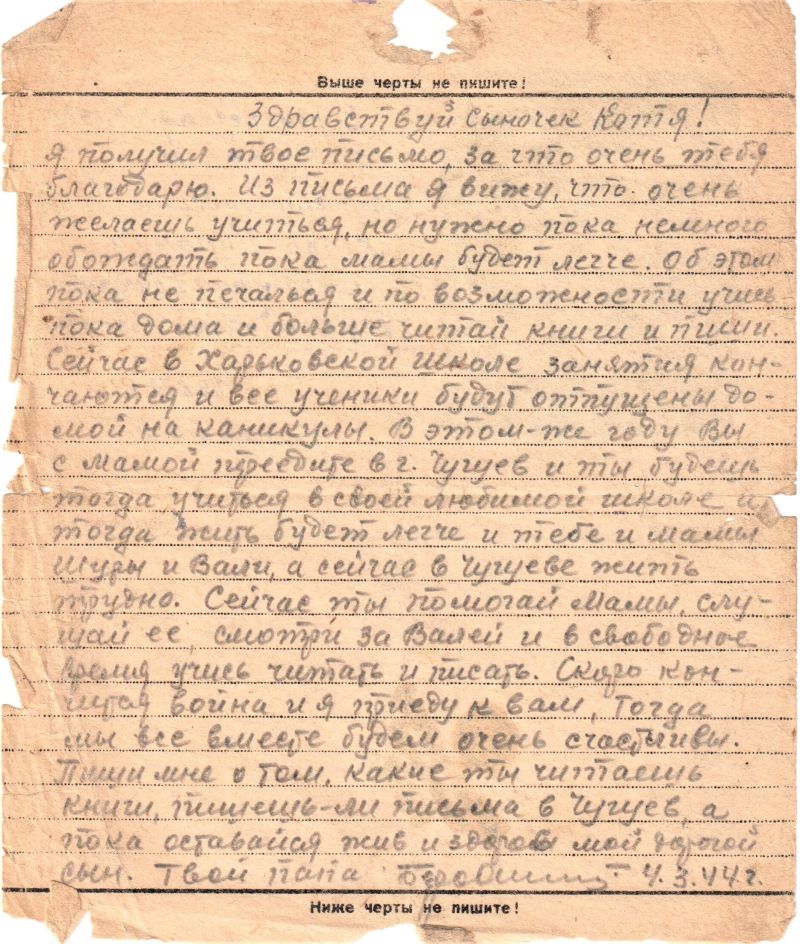 Выше черты не пишите!
Здравствуй сыночек Котя!
Я получил твое письмо, за что очень тебя
благодарю. Из письма я вижу, что очень
желаешь учиться, но нужно пока немного
обождать пока мамы будет легче. Об этом
пока не печалься и по возможности учись
пока дома и больше читай книги и пиши.
Сейчас в Харьковской школе занятия кон-
чаются и все ученики будут отпущены до-
мой на каникулы. В этом-же году Вы
с мамой приедите в г. Чугуев и ты будешь
тогда учиться в своей любимой школе и
тогда жить будет легче и тебе и мамы
Шуры и Вали, а сейчас в Чугуеве жить
трудно. Сейчас ты помогай мамы, слу-
шай ее, смотри за Валей и в свободное
время учись читать и писать. Скоро кон-
чится война и я приеду к вам, тогда
мы все вместе будем очень счастливы.
Пиши мне о том, какие ты читаешь
книги, пишешь-ли письма в Чугуев, а
пока оставайся жив и здоров мой дорогой
сын. Твой папа 4.3.44г.
Ниже черты не пишите!